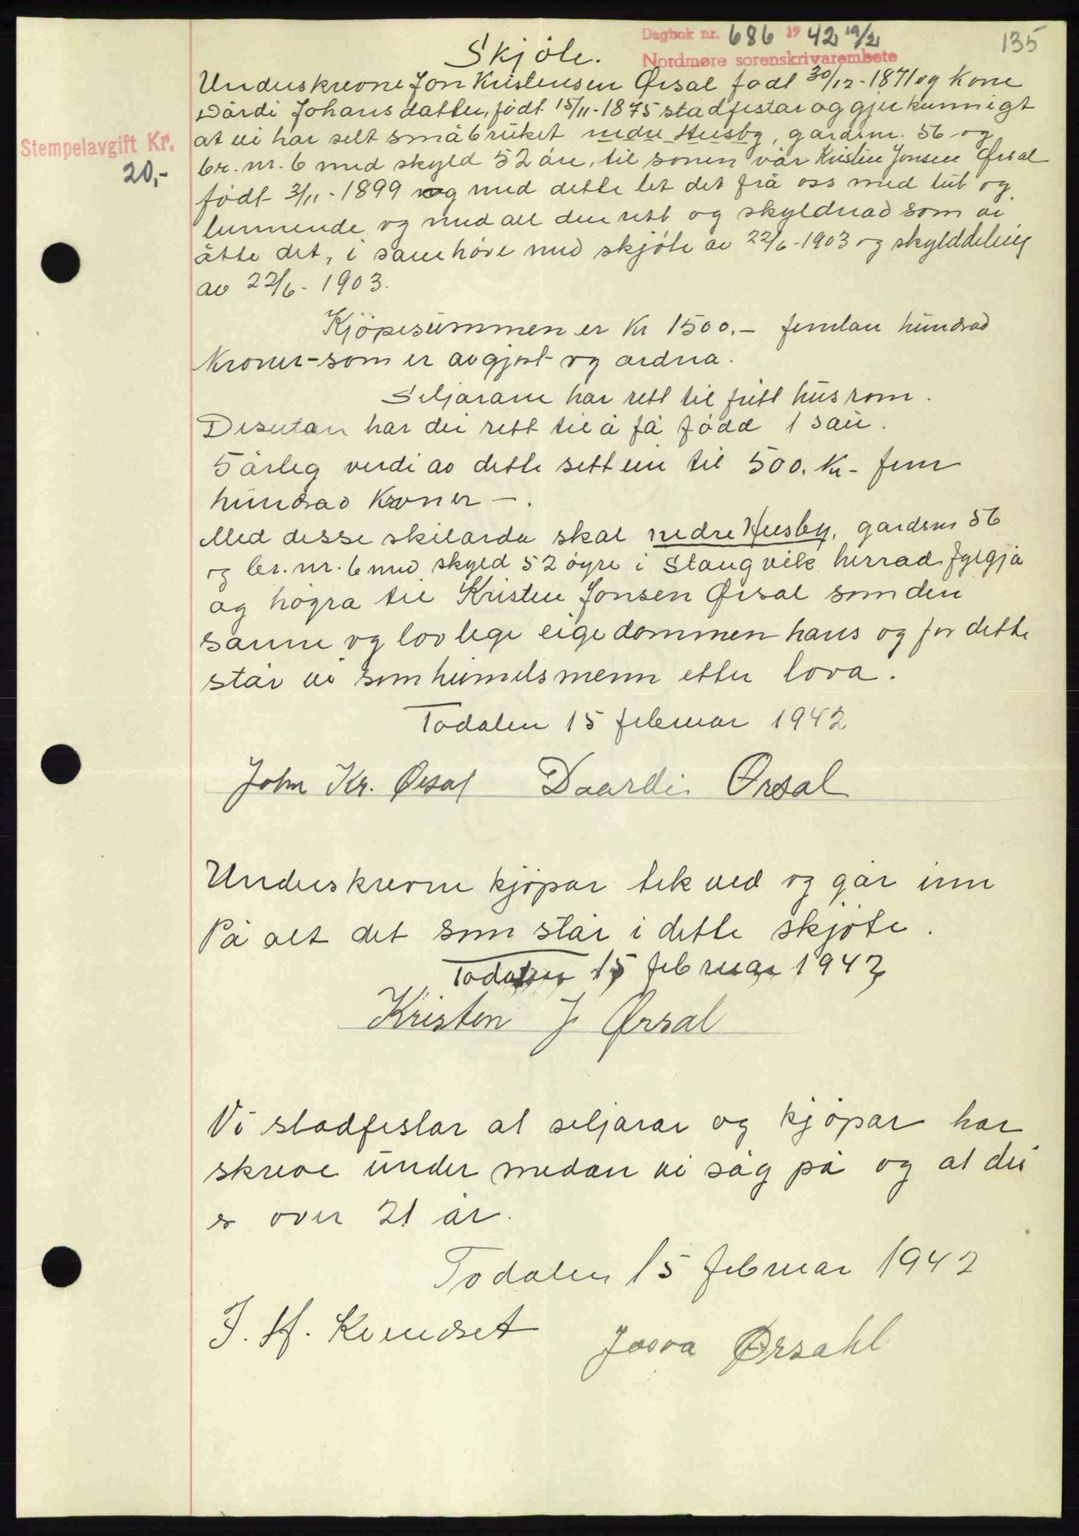 Dagbok nr. 686 1942 19/2
Nordmøre sorenskrivarembete
135
Stempelavgift Kr.
20,-
Skjøte.
Underskrevne Jon Kristensen Ørsal født 30/12-1871 og kone
Dårdi Johansdatter, født 15/11-1875 stadfestar og gjer kunnigt
at vi har selt småbruket nedre Husby, gardsnr. 56 og
br. nr. 6 med skyld 52 øre, til sonen vår Kristen Jonsen Ørsal
født 3/11-1899 og med dette let det frå oss med lut og
lunnende og med all den rett og skyldnad som vi
åtte det, i samhøve med skjøte av 22/6-1903 og skylddeling
av 22/6-1903.
Kjöpesummen er Kr 1500.- femtan hundrad
Kroner-som er avgjort og ordna.
Seljarane har rett til fritt husrom.
Desutan har dei rett til å få född 1 sau.
5 årleg verdi av dette sett ein til 500. Kr- fem
hundrad Kroner -.
Med desse skilorda skal nedre Husby, gardsnr 56
og br. nr. 6 med skyld 52 öyre i Stangvik herrad fylgja
og högra til Kristen Jonsen Ørsal som den
sanne og lovlege eigedommen hans og for dette
står vi som heimelsmenn etter lova.
Todalen 15 februar 1942
John Kr. Ørsal Daardi Ørsal
Underskrevne kjöpar tek ved og går inn
På alt det som står i dette skjöte.
Todalen 15 februar 1942
Kristen J Ørsal
Vi stadfestar at seljarar og kjöpar har
skreve under medan vi såg på og at dei
er over 21 år.
Todalen 15 februar 1942
J. H. Kvendset Josva Ørsahl